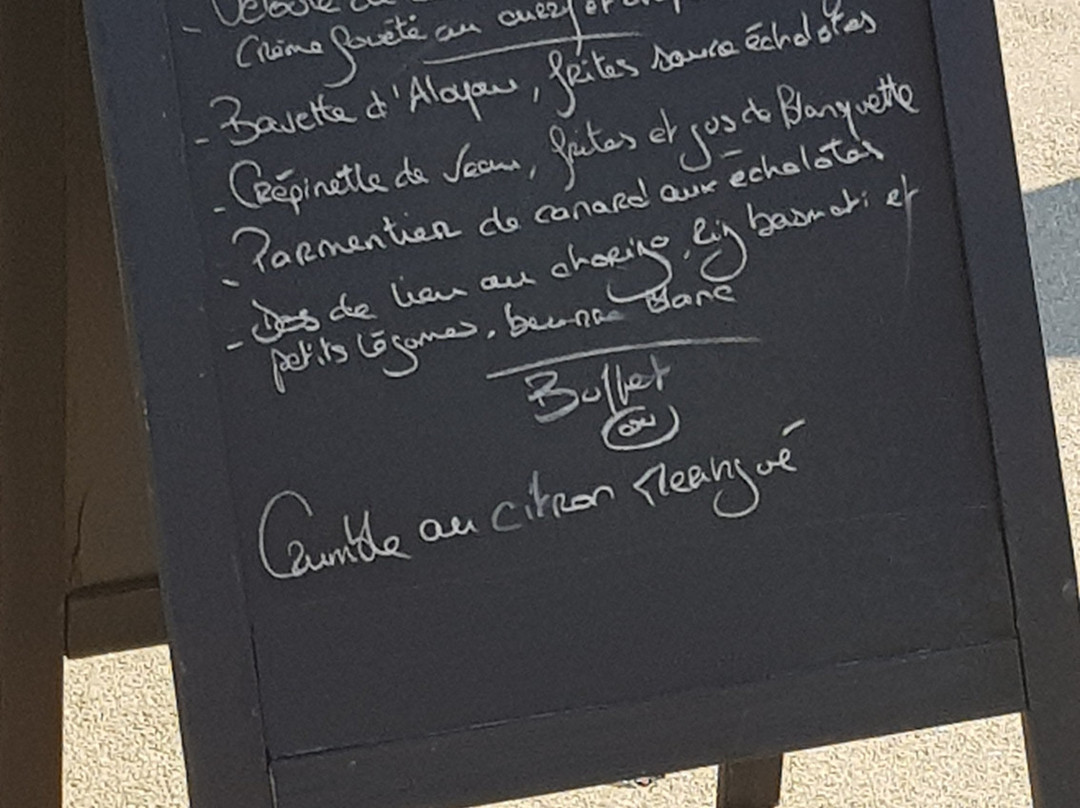 - Velouté de
Crème fouété au curry et
- Bavette d'Aloyau, frites sauce échalotes
- Crépinette de Veau, frites et jus de Blanquette
- Parmentier de canard aux échalotes
- Dos de lieu au chorizo, riz basmati et
petits légumes, beurre blanc
Buffet
ou
Crumble au citron meringué